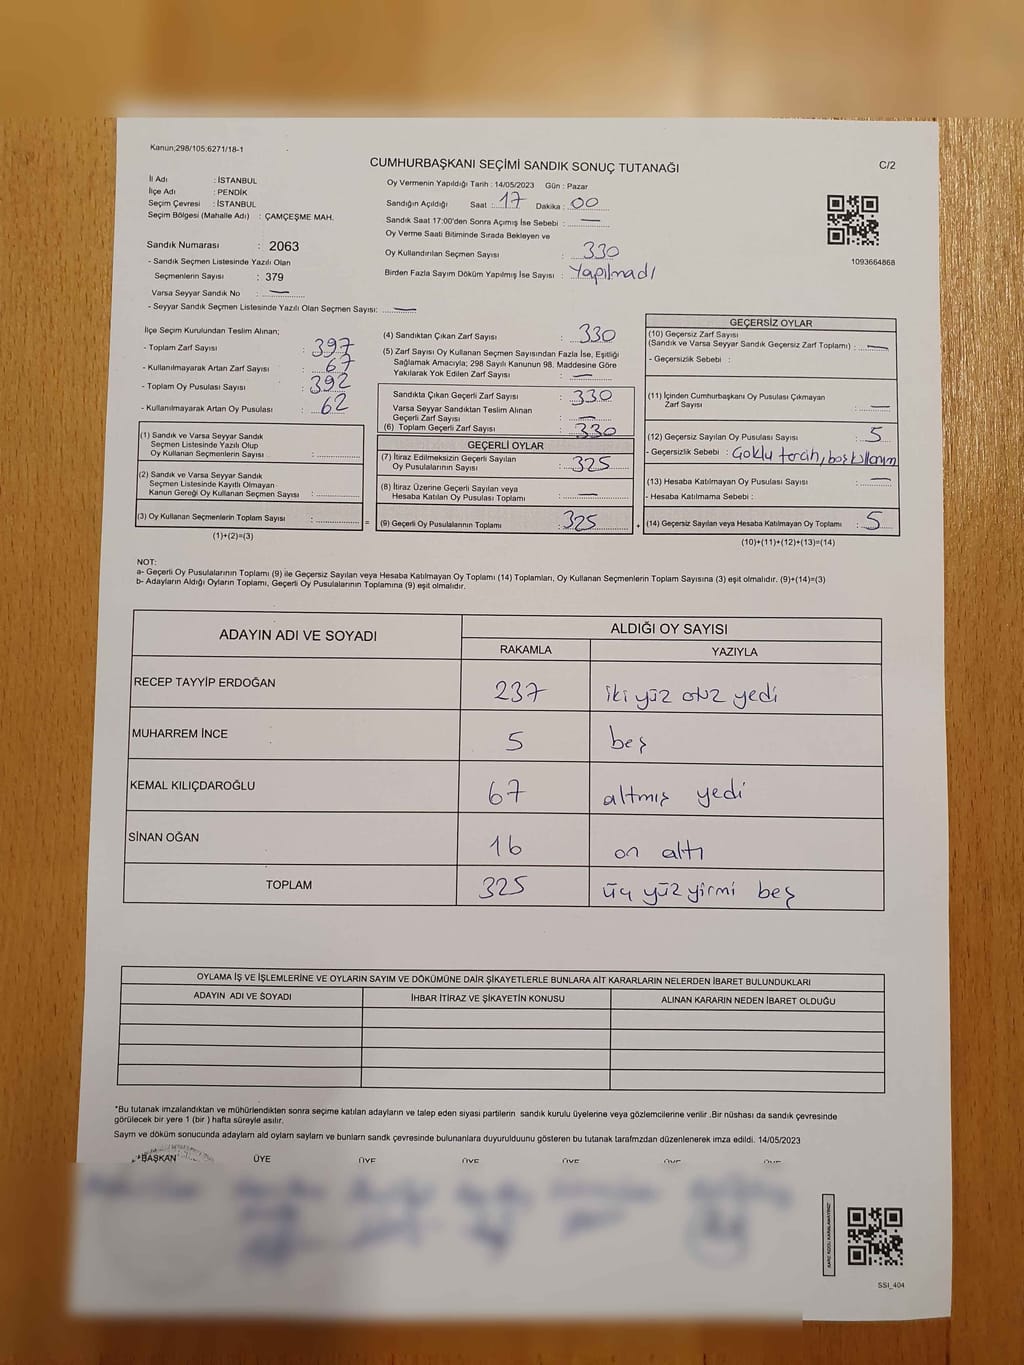 Kanun;298/105;6271/18-1
CUMHURBAŞKANI SEÇİMİ SANDIK SONUÇ TUTANAĞI
C/2
İl Adı : İSTANBUL
İlçe Adı : PENDİK
Seçim Çevresi : İSTANBUL
Seçim Bölgesi (Mahalle Adı) : ÇAMÇEŞME MAH.
Oy Vermenin Yapıldığı Tarih : 14/05/2023 Gün : Pazar
Sandığın Açıldığı Saat : 17 Dakika : 00
Sandık Saat 17:00'den Sonra Açımış İse Sebebi : —
Oy Verme Saati Bitiminde Sırada Bekleyen ve
Oy Kullandırılan Seçmen Sayısı : 330
Birden Fazla Sayım Döküm Yapılmış İse Sayısı : Yapılmadı
1093664868
Sandık Numarası : 2063
- Sandık Seçmen Listesinde Yazılı Olan
Seçmenlerin Sayısı : 379
Varsa Seyyar Sandık No : —
- Seyyar Sandık Seçmen Listesinde Yazılı Olan Seçmen Sayısı: —
İlçe Seçim Kurulundan Teslim Alınan;
- Toplam Zarf Sayısı : 397
- Kullanılmayarak Artan Zarf Sayısı : 67
- Toplam Oy Pusulası Sayısı : 392
- Kullanılmayarak Artan Oy Pusulası : 62
(1) Sandık ve Varsa Seyyar Sandık
Seçmen Listesinde Yazılı Olup
Oy Kullanan Seçmenlerin Sayısı :
(2) Sandık ve Varsa Seyyar Sandık
Seçmen Listesinde Kayıtlı Olmayan
Kanun Gereği Oy Kullanan Seçmen Sayısı :
(3) Oy Kullanan Seçmenlerin Toplam Sayısı :
=
(1)+(2)=(3)
(4) Sandıktan Çıkan Zarf Sayısı : 330
(5) Zarf Sayısı Oy Kullanan Seçmen Sayısından Fazla İse, Eşitliği
Sağlamak Amacıyla; 298 Sayılı Kanunun 98. Maddesine Göre
Yakılarak Yok Edilen Zarf Sayısı : —
Sandıkta Çıkan Geçerli Zarf Sayısı : 330
Varsa Seyyar Sandıktan Teslim Alınan
Geçerli Zarf Sayısı : —
(6) Toplam Geçerli Zarf Sayısı : 330
GEÇERLİ OYLAR
(7) İtiraz Edilmeksizin Geçerli Sayılan
Oy Pusulalarının Sayısı : 325
(8) İtiraz Üzerine Geçerli Sayılan veya
Hesaba Katılan Oy Pusulası Toplamı : —
(9) Geçerli Oy Pusulalarının Toplamı : 325
+
GEÇERSİZ OYLAR
(10) Geçersiz Zarf Sayısı
(Sandık ve Varsa Seyyar Sandık Geçersiz Zarf Toplamı) : —
- Geçersizlik Sebebi :
(11) İçinden Cumhurbaşkanı Oy Pusulası Çıkmayan
Zarf Sayısı : —
(12) Geçersiz Sayılan Oy Pusulası Sayısı : 5
- Geçersizlik Sebebi : Çoklu tercih, boş kullanım
(13) Hesaba Katılmayan Oy Pusulası Sayısı : —
- Hesaba Katılmama Sebebi :
(14) Geçersiz Sayılan veya Hesaba Katılmayan Oy Toplamı : 5
(10)+(11)+(12)+(13)=(14)
NOT:
a- Geçerli Oy Pusulalarının Toplamı (9) ile Geçersiz Sayılan veya Hesaba Katılmayan Oy Toplamı (14) Toplamları, Oy Kullanan Seçmenlerin Toplam Sayısına (3) eşit olmalıdır. (9)+(14)=(3)
b- Adayların Aldığı Oyların Toplamı, Geçerli Oy Pusulalarının Toplamına (9) eşit olmalıdır.
ADAYIN ADI VE SOYADI
ALDIĞI OY SAYISI
RAKAMLA YAZIYLA
RECEP TAYYİP ERDOĞAN 237 iki yüz otuz yedi
MUHARREM İNCE 5 beş
KEMAL KILIÇDAROĞLU 67 altmış yedi
SİNAN OĞAN 16 on altı
TOPLAM 325 üç yüz yirmi beş
OYLAMA İŞ VE İŞLEMLERİNE VE OYLARIN SAYIM VE DÖKÜMÜNE DAİR ŞİKAYETLERLE BUNLARA AİT KARARLARIN NELERDEN İBARET BULUNDUKLARI
ADAYIN ADI VE SOYADI İHBAR İTİRAZ VE ŞİKAYETİN KONUSU ALINAN KARARIN NEDEN İBARET OLDUĞU
*Bu tutanak imzalandıktan ve mühürlendikten sonra seçime katılan adayların ve talep eden siyasi partilerin sandık kurulu üyelerine veya gözlemcilerine verilir .Bir nüshası da sandık çevresinde
görülecek bir yere 1 (bir ) hafta süreyle asılır.
Saym ve döküm sonucunda adaylarn ald oylarn saylarn ve bunlarn sandk çevresinde bulunanlara duyurulduunu gösteren bu tutanak tarafmzdan düzenlenerek imza edildi. 14/05/2023
BAŞKAN ÜYE ÜYE ÜYE ÜYE ÜYE ÜYE
SSI_404